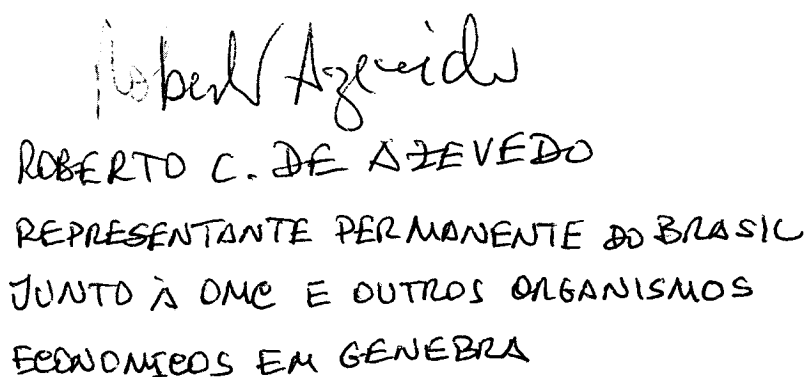 Roberto Azevedo
ROBERTO C. DE AZEVEDO
REPRESENTANTE PERMANENTE DO BRASIL
JUNTO À OMC E OUTROS ORGANISMOS
ECONOMICOS EM GENEBRA